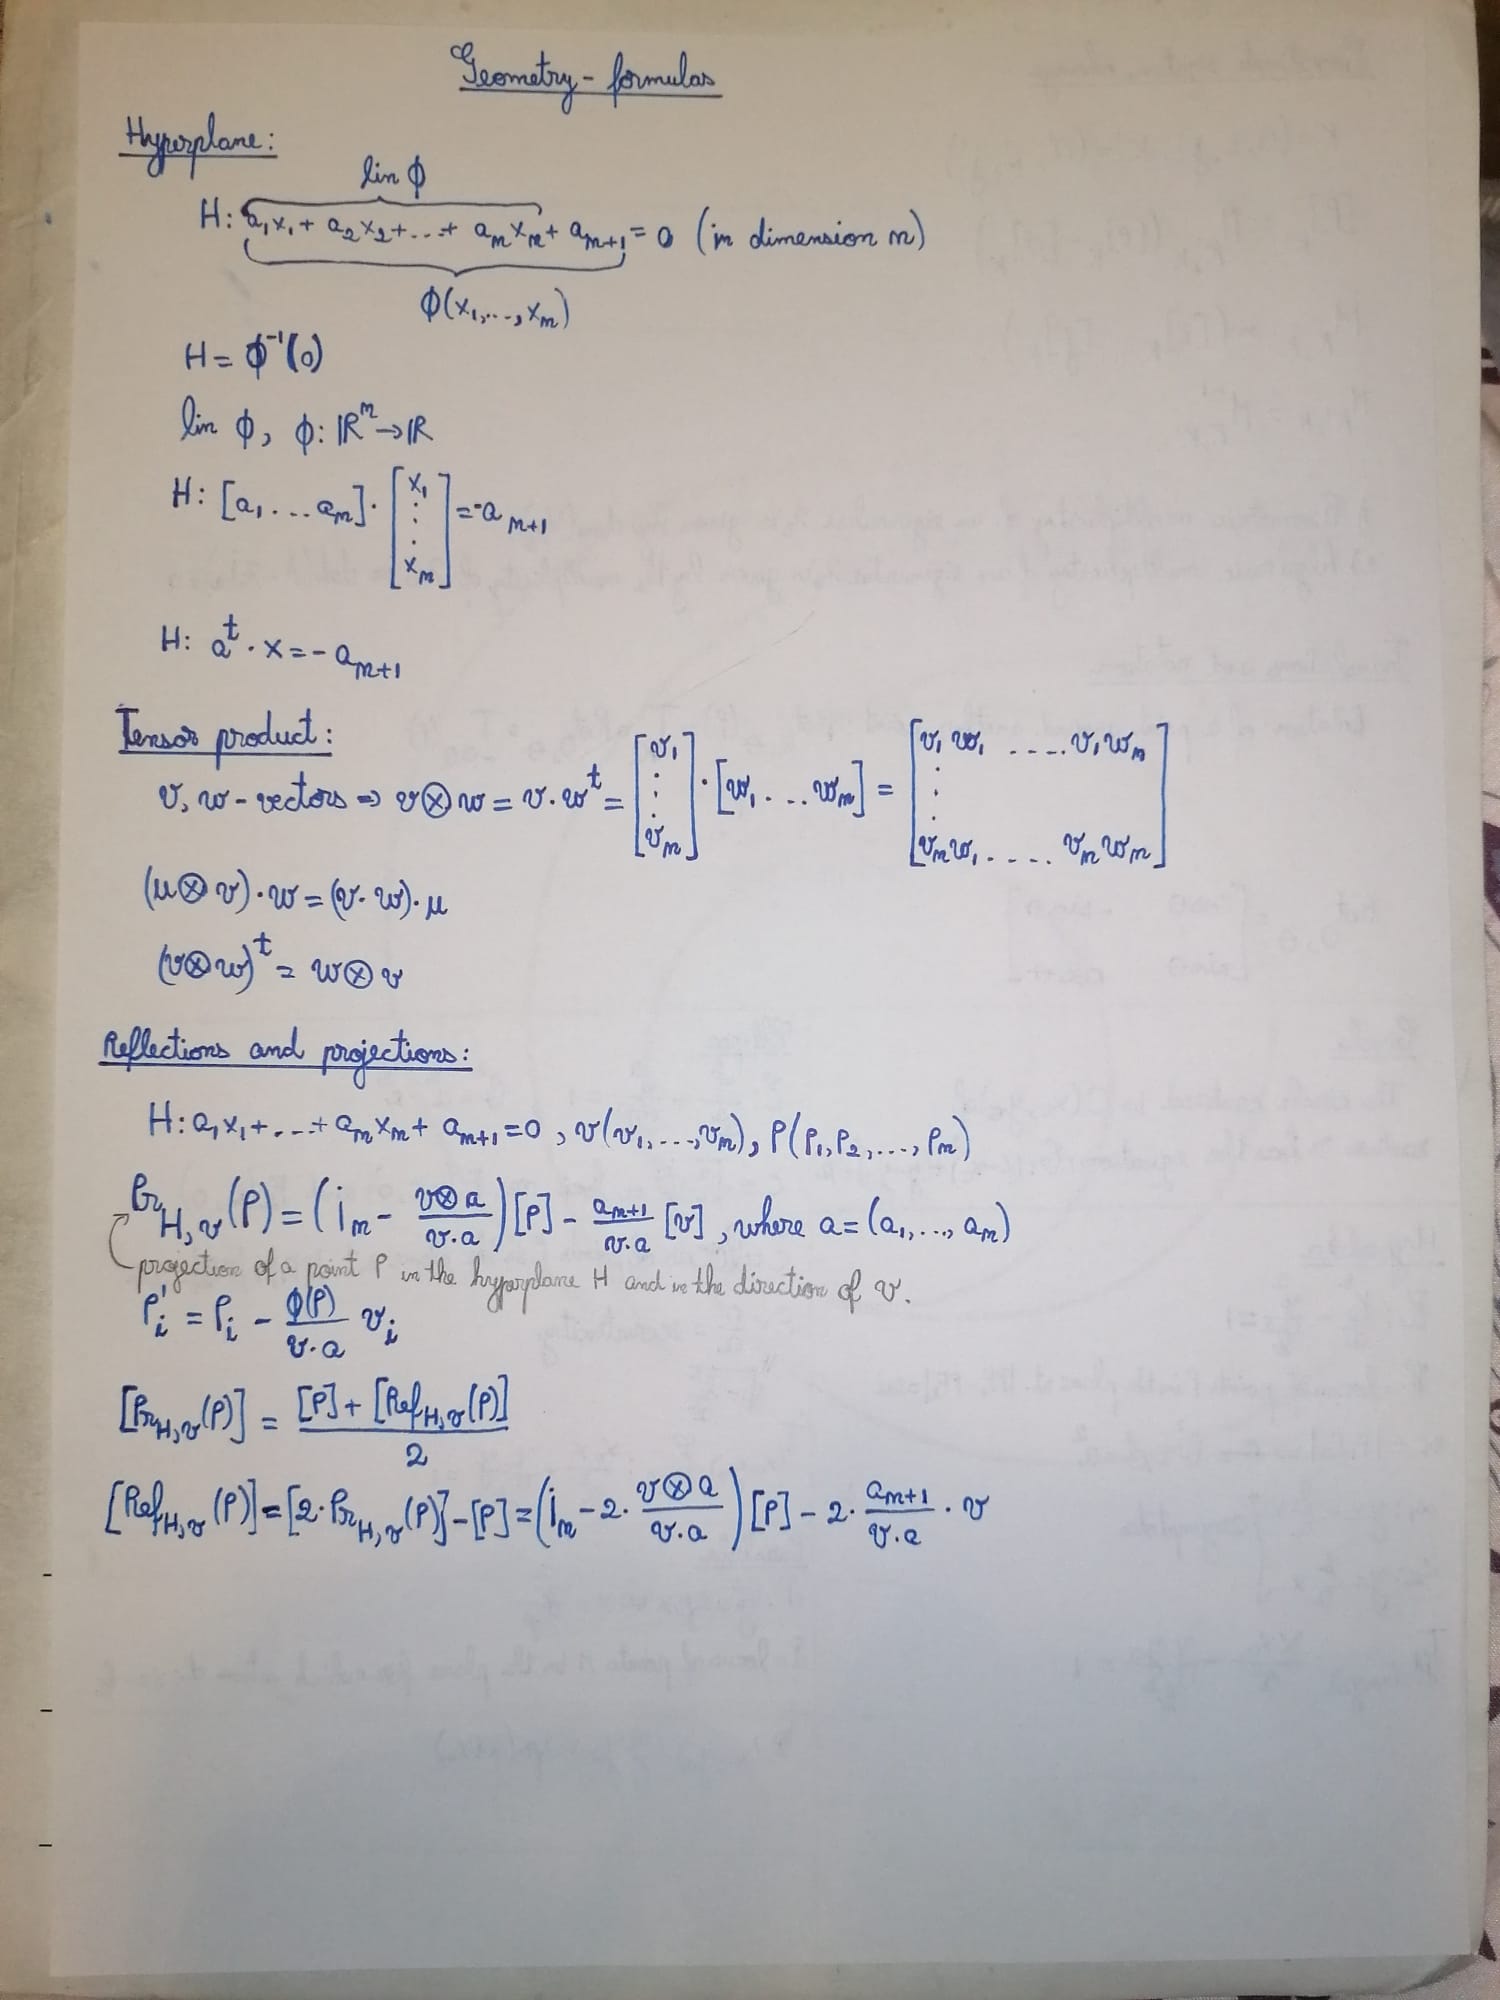 Geometry - formulas
Hyperplane:
lin ϕ
H: a₁x₁ + a₂x₂ + ... + aₙxₙ + aₙ₊₁ = 0 (in dimension n)
ϕ(x₁,...,xₙ)
H = ϕ⁻¹(0)
lin ϕ, ϕ: ℝⁿ → ℝ
H: [a₁ ... aₙ] · [x₁ ⋮ xₙ] = -aₙ₊₁
H: aᵗ · x = - aₙ₊₁
Tensor product:
v, w - vectors ⇒ v⊗w = v · wᵗ = [v₁ ⋮ vₙ] · [w₁ ... wₙ] = [v₁w₁ ..... v₁wₙ ⋮ vₙw₁ ..... vₙwₙ]
(u⊗v) · w = (v · w) · u
(v⊗w)ᵗ = w⊗v
Reflections and projections:
H: a₁x₁ + ... + aₙxₙ + aₙ₊₁ = 0, v(v₁,...,vₙ), P(p₁, p₂,..., pₙ)
Pr_H,v (P) = (iₙ - (v⊗a)/(v·a)) [P] - (aₙ₊₁)/(v·a) [v], where a = (a₁,..., aₙ)
projection of a point P in the hyperplane H and in the direction of v.
Pᵢ' = Pᵢ - ϕ(P)/(v·a) vᵢ
[Pr_H,v (P)] = ([P] + [Ref_H,v (P)])/2
[Ref_H,v (P)] = [2 · Pr_H,v (P)] - [P] = (iₙ - 2 · (v⊗a)/(v·a)) [P] - 2 · (aₙ₊₁)/(v·a) · v